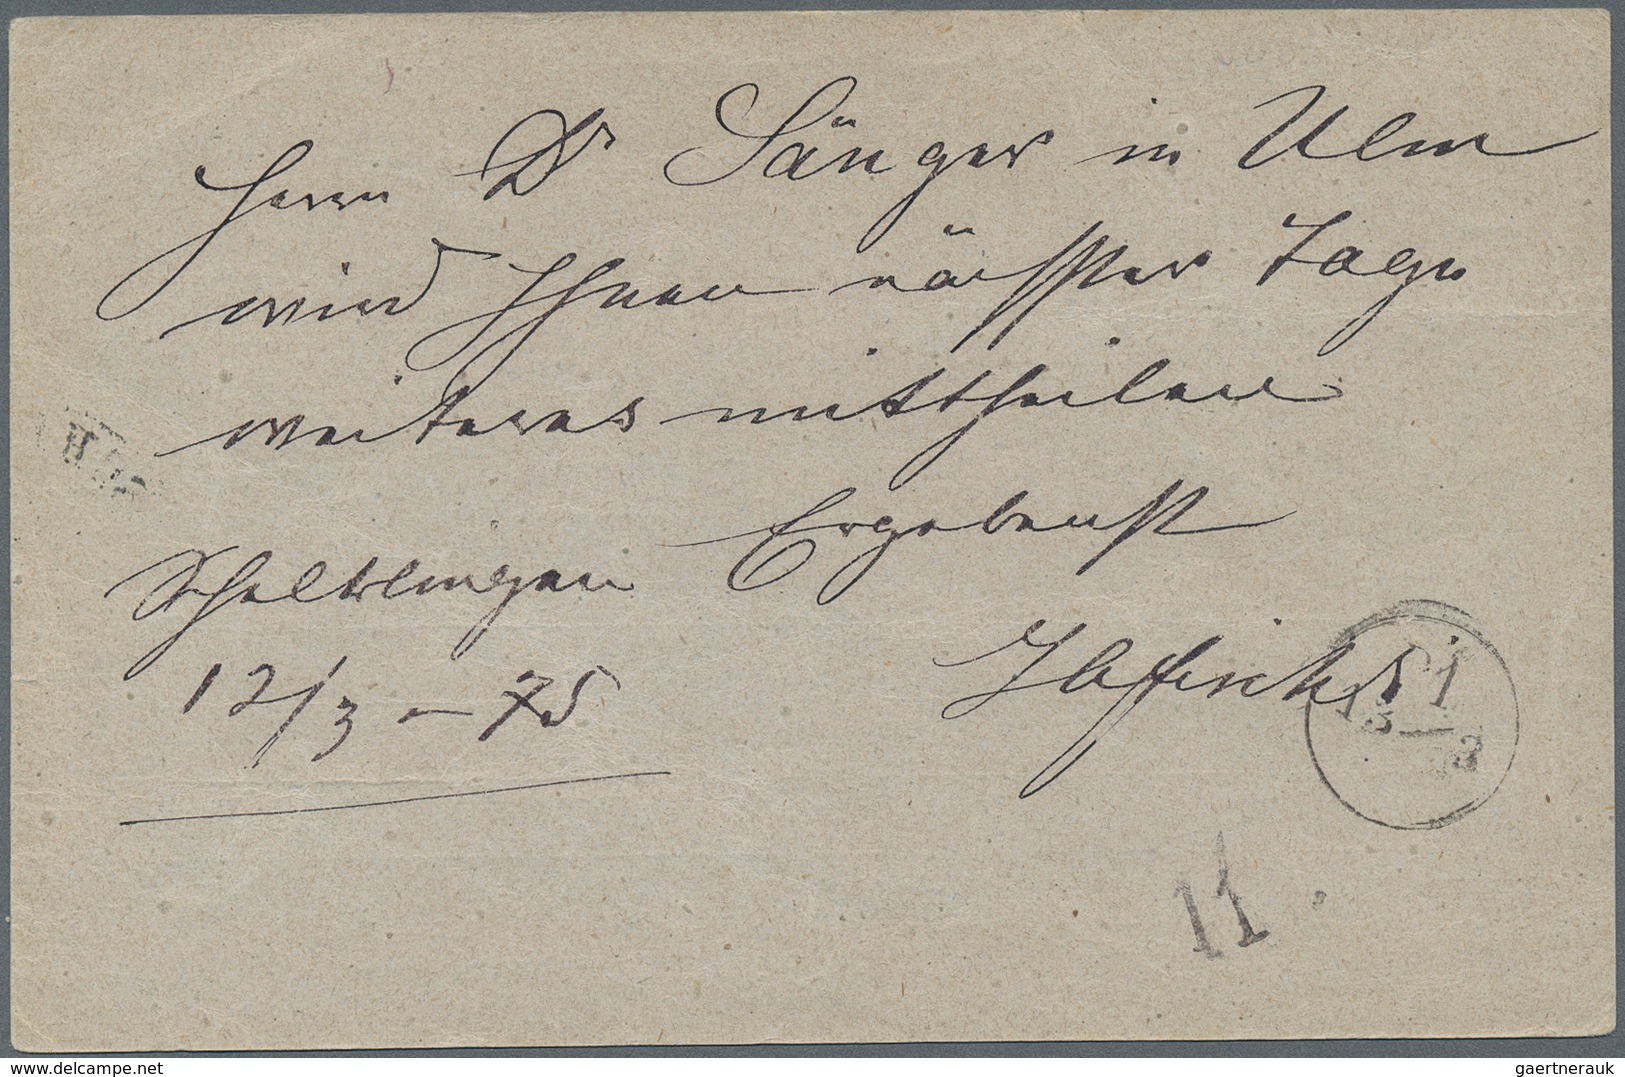 Herrn Dr Sänger in Ulm
wird Ihnen nächster Tage
weiteres mittheilen
Ergebenst
Schelklingen
12/3 – 75
13
3
11.
www.delcampe.net
gaertnerauk